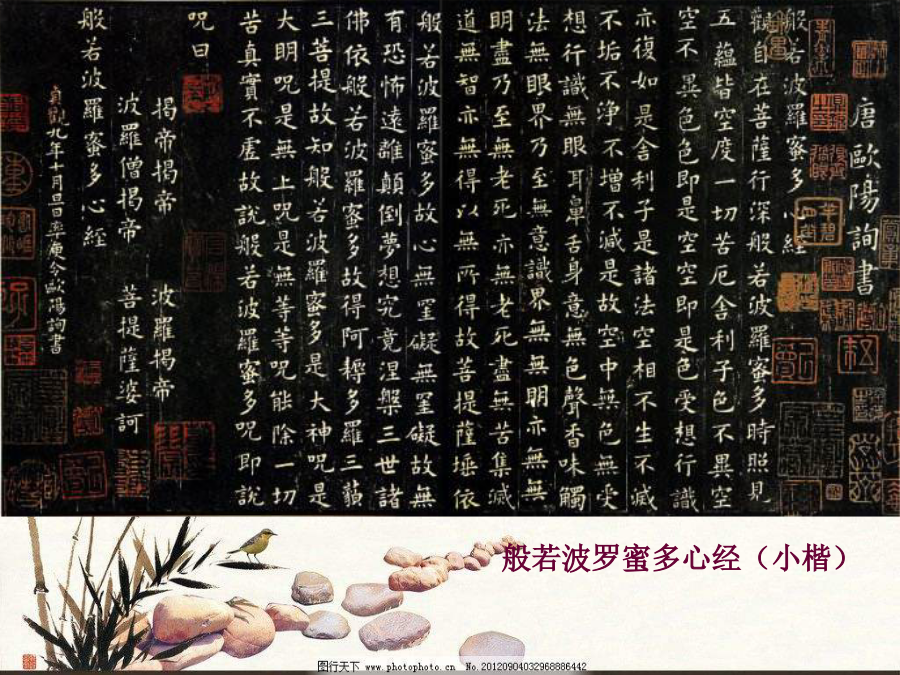 唐歐陽詢書
般若波羅蜜多心經
觀自在菩薩行深般若波羅蜜多時照見
五蘊皆空度一切苦厄舍利子色不異空
空不異色色即是空空即是色受想行識
亦復如是舍利子是諸法空相不生不滅
不垢不淨不增不減是故空中無色無受
想行識無眼耳鼻舌身意無色聲香味觸
法無眼界乃至無意識界無無明亦無無
明盡乃至無老死亦無老死盡無苦集滅
道無智亦無得以無所得故菩提薩埵依
般若波羅蜜多故心無罣礙無罣礙故無
有恐怖遠離顛倒夢想究竟涅槃三世諸
佛依般若波羅蜜多故得阿耨多羅三藐
三菩提故知般若波羅蜜多是大神咒是
大明咒是無上咒是無等等咒能除一切
苦真實不虛故說般若波羅蜜多咒即說
咒曰
揭帝揭帝 波羅揭帝
波羅僧揭帝 菩提薩婆訶
般若波羅蜜多心經
貞觀九年十月旦日率更令歐陽詢書
般若波罗蜜多心经（小楷）
图行天下 www.photophoto.cn No.20120904032968886442